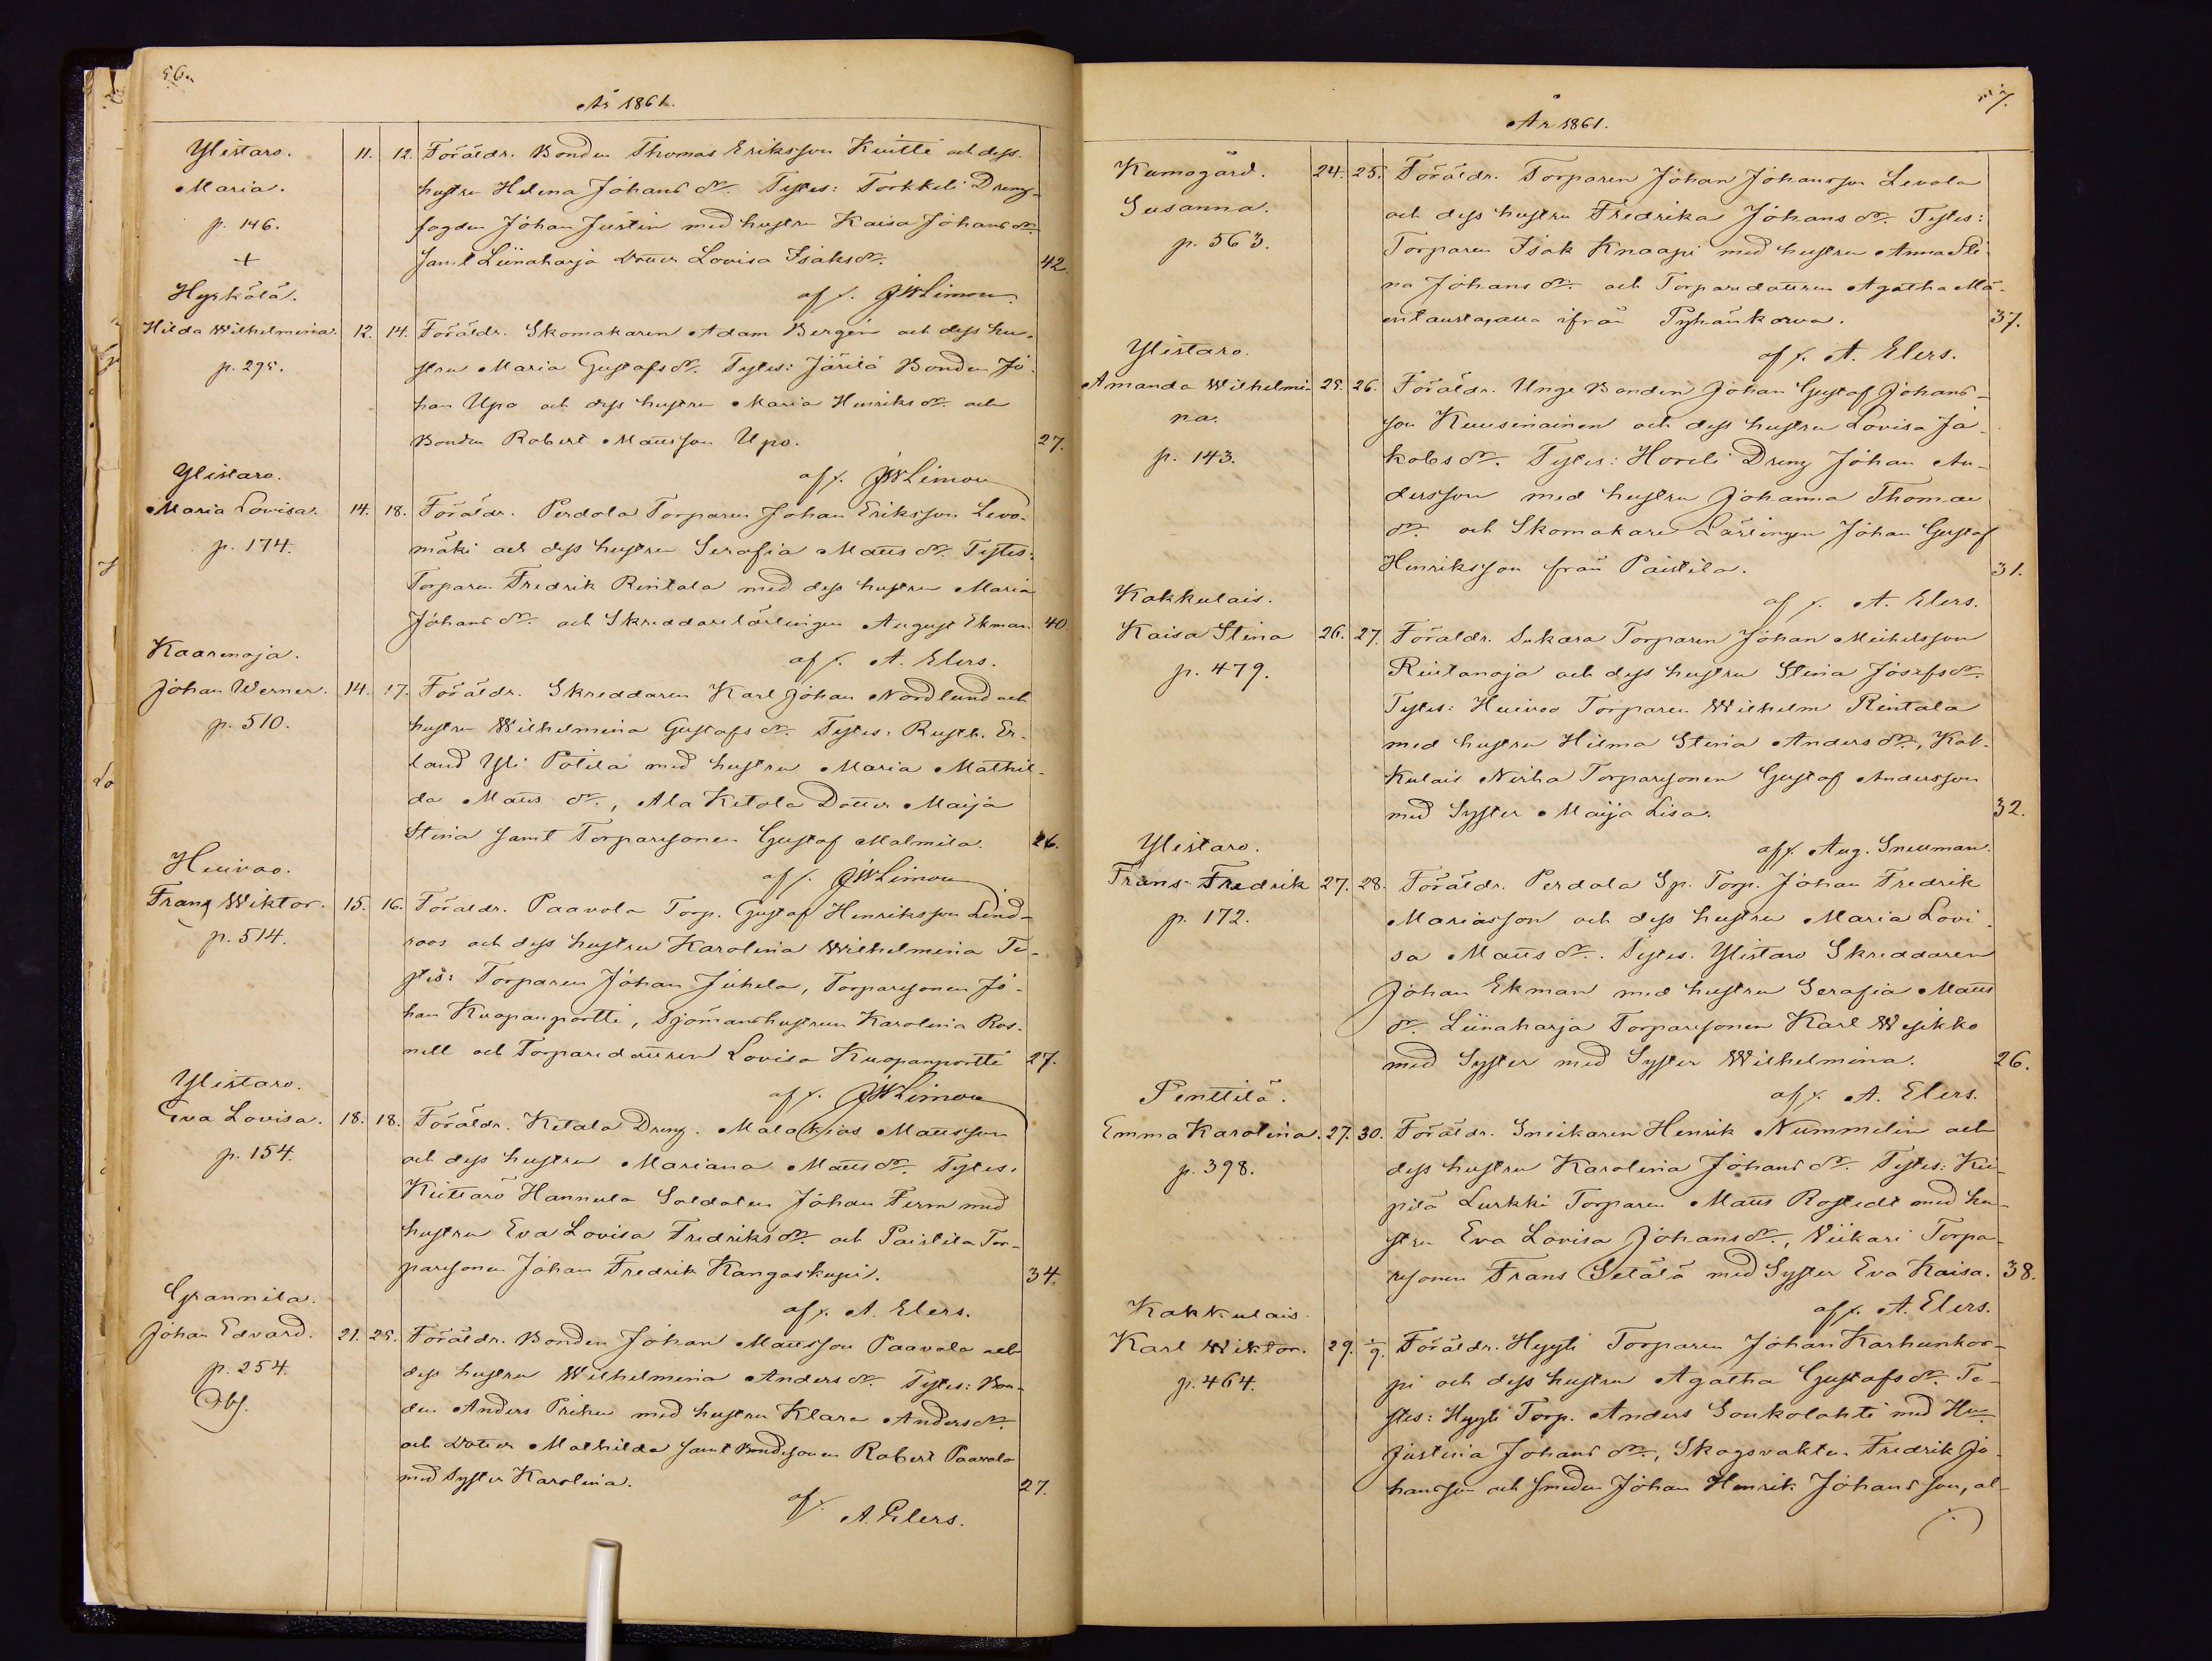 56.
År 1861.
Ylistaro. 11. 12. Föräldr. Bonden Thomas Eriksson Kuitti och dess
Maria. hustru Helena Johans dr. Testes: Torkkeli Dreng-
p. 146. fogden Johan Justin med hustru Kaisa Johans dr.
+ samt Liinaharja dotter Lovisa Isaks dr. 42.
Hyrkölä. af f. JW Limon
Hilda Wilhelmina. 12. 14. Föräldr. Skomakaren Adam Bergén och dess hu-
p. 295. stru Maria Gustafs dr. Testes: Järilä Bonden Jo-
han Upo och dess hustru Maria Hinriks dr. och
Bonden Robert Mattsson Upo. 27.
Ylistaro. af f. JW Limon
Maria Lovisa. 14. 18. Föräldr. Perdola Torparen Johan Eriksson Levo-
p. 174. mäki och dess hustru Serafia Matts dr. Testes:
Torparen Fredrik Rintala med dess hustru Maria
Johans dr. och Skreddarelärlingen August Ekman. 40.
Kaarenoja. af f. A. Elers.
Johan Werner. 14. 17. Föräldr. Skreddaren Karl Johan Nordlund och
p. 510. hustru Wilhelmina Gustafs dr. Testes: Rusth. Er-
land Yli Potila med hustru Maria Mathil-
da Matts dr., Ala Ketola Dotter Maija
Stina samt Torparesonen Gustaf Malmila. 26.
Huivoo. af f. JW Limon
Franz Wiktor. 15. 16. Föräldr. Paavola Torp. Gustaf Henriksson Lind-
p. 514. roos och dess hustru Karolina Wilhelmina Te-
stes: Torparen Johan Juhela, Torparesonen Jo-
han Kuopanportti, Sjömanshustrun Karolina Ros-
nell och Torparedottren Lovisa Kuopanportti 27.
Ylistaro. af f. JW Limon
Eva Lovisa. 18. 18. Föräldr. Ketala Dreng. Malakias Mattsson
p. 154. och dess hustru Mariana Matts dr. Testes:
Kiettarö Hannula Soldaten Johan Ferm med
hustru Eva Lovisa Fredriks dr. och Paistila Tor-
paresonen Johan Fredrik Kangaskuja. 34.
Grannila. af f. A. Elers.
Johan Edvard. 21. 25. Föräldr. Bonden Johan Mattsson Paavola och
p. 254. dess hustru Wilhelmina Anders dr. Testes: Bon-
Obs. den Anders Priku med hustru Klara Anders dr.
och dotter Mathilda samt Bondesonen Robert Paavola
med Syster Karolina. 27.
af f. A. Elers.
57.
År 1861.
Kumogård. 24. 25. Föräldr. Torparen Johan Johansson Levola
Susanna. och dess hustru Fredrika Johans dr. Testes:
p. 563. Torparen Isak Knaapi med hustru Anna Sti-
na Johans dr. och Torparedottren Agatha Mä-
entaustagatta ifrån Pyhänkorva. 37.
Ylistaro. af f. A. Elers.
Amanda Wilhelmi- 25. 26. Föräldr. Unge Bonden Johan Gustaf Johans-
na. son Kuusinainen och dess hustru Lovisa Ja-
p. 143. kobs dr. Testes: Hoveli Dreng Johan An-
dersson med hustru Johanna Thomae
dr. och Skomakare Lärlingen Johan Gustaf
Henriksson från Paistila. 31.
Kakkulais. af f. A. Elers.
Kaisa Stina 26. 27. Föräldr. Sukara Torparen Johan Michelsson
p. 479. Rintanoja och dess hustru Stina Josefs dr.
Testes: Huivoo Torparen Wilhelm Rintala
med hustru Hilma Stina Anders dr., Kak-
kulais Nirha Torparesonen Gustaf Andersson
med Syster Maija Lisa. 32.
Ylistaro. af f. Aug. Sneuman.
Frans Fredrik 27. 28. Föräldr. Perdola Sp. Torp. Johan Fredrik
p. 172. Mariasson och dess hustru Maria Lovi-
sa Matts dr. Testes. Ylistaro Skreddaren
Johan Ekman med hustru Serafia Matts
dr. Liinaharja Torparesonen Karl Wesikko
med Syster med Syster Wilhelmina. 26.
Penttilä. af f. A. Elers.
Emma Karolina. 27. 30. Föräldr. Sneikaren Henrik Nummelin och
p. 398. dess hustru Karolina Johans dr. Testes: Kii-
pilä Lurkki Torparen Matts Rostedt med hu-
stru Eva Lovisa Johans dr., Wiikari Torpa-
resonen Frans Setälä med Syster Eva Kaisa. 38.
Kakkulais. af f. A. Elers.
Karl Wiktor. 29. 1/9. Föräldr. Hyyli Torparen Johan Karhunkor-
p. 464. pi och dess hustru Agatha Gustafs dr. Te-
stes: Hyyli Torp. Anders Soukolahti med Hu
Justina Johans dr., Skogsvakten Fredrik Jo-
hansson och smeden Johan Henrik Johansson, al-